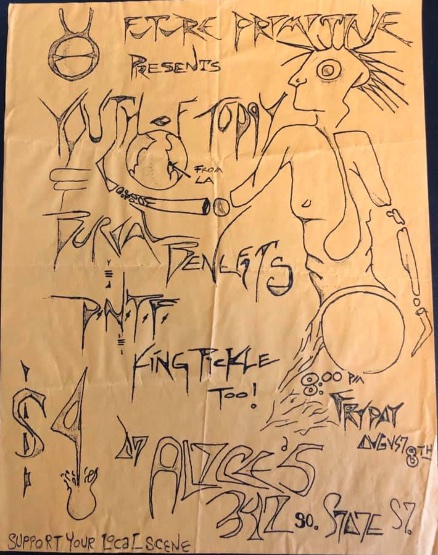 FUTURE PRIMITIVE
PRESENTS
YOUTH OF TODAY
FROM
LA
BURIAL BENEFITS
KING PICKLE
TOO!
8:00 PM
FRYDAY
AUGUST 8TH
$4
AT ALYCE'S
342 SO. STATE ST.
SUPPORT YOUR LOCAL SCENE